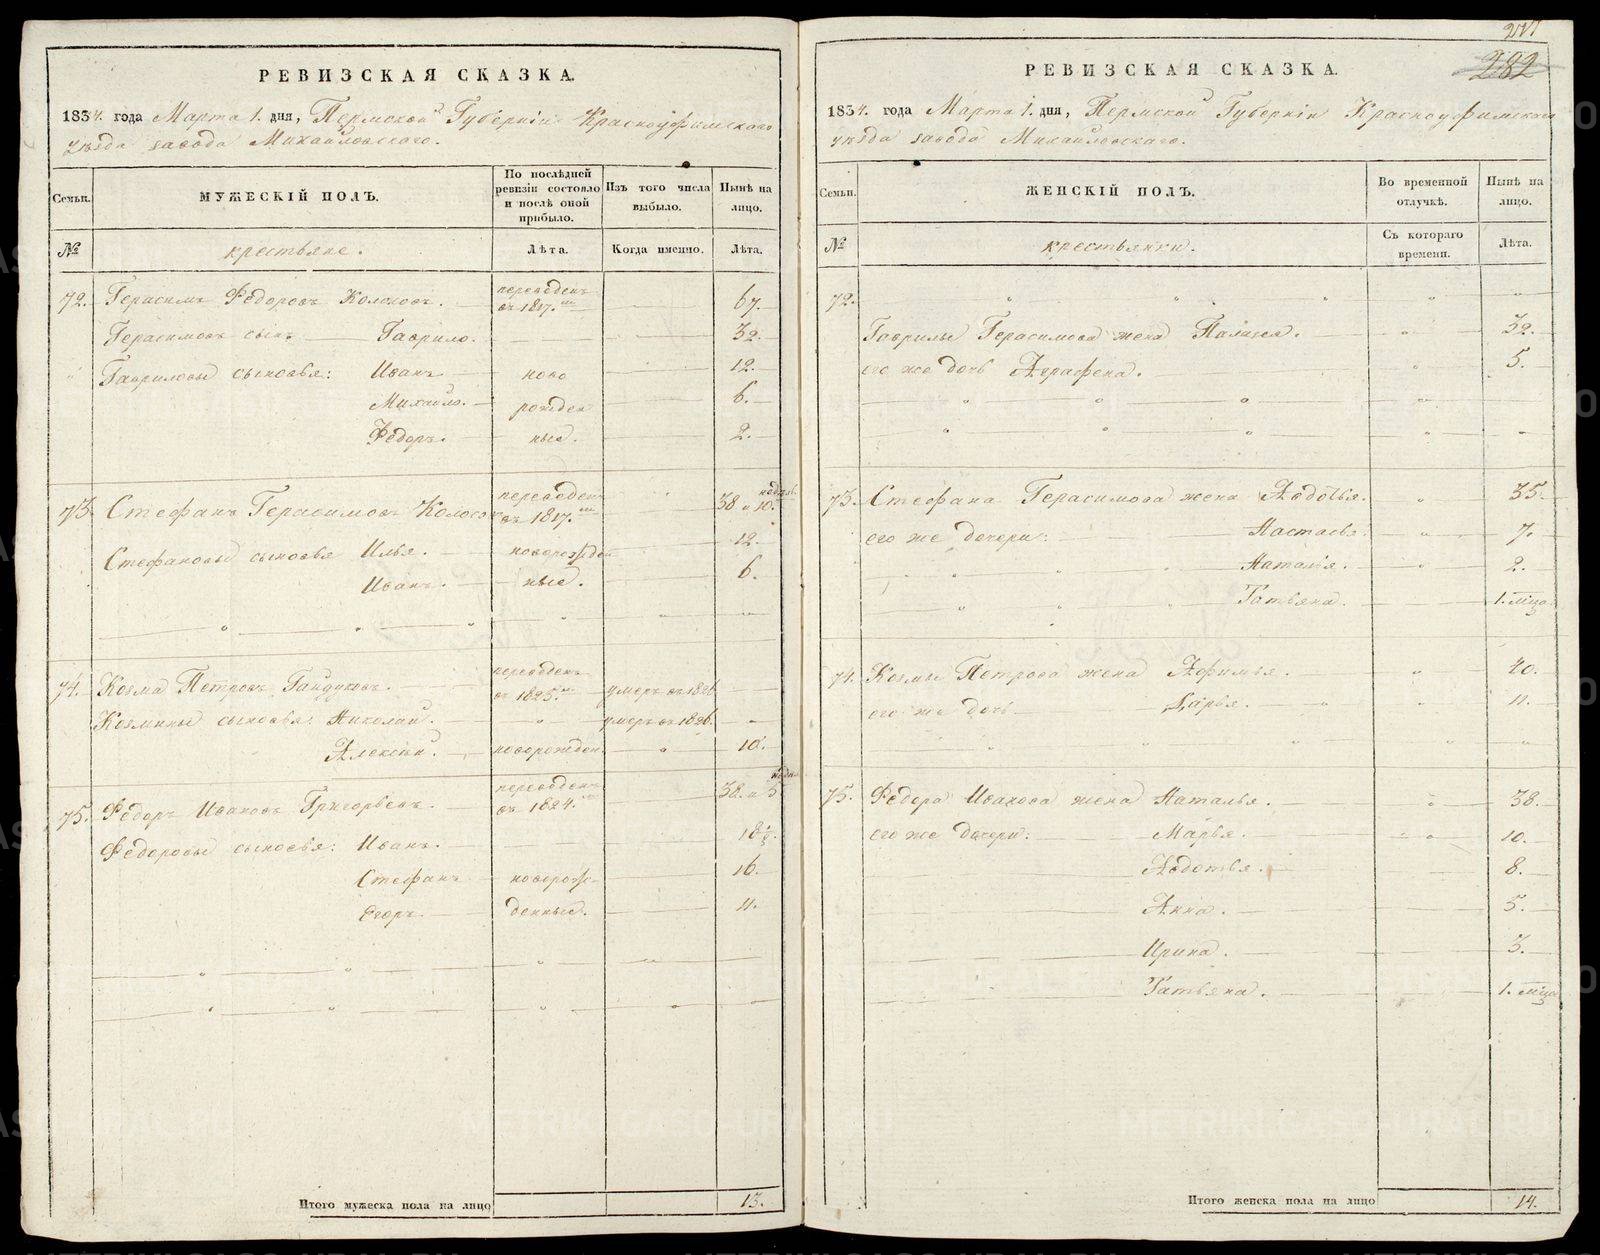 РЕВИЗСКАЯ СКАЗКА.
1834. года Марта 1. дня, Пермской Губернiи Красноуфимскаго
уѣзда завода Михайловскаго.
Семьи.
МУЖЕСКІЙ ПОЛЪ.
По послѣдней ревизіи состояло и послѣ оной прибыло.
Изъ того числа выбыло.
Нынѣ на лицо.
№
крестьяне.
Лѣта.
Когда именно.
Лѣта.
72. Герасимъ Федоровъ Колосовъ. переведенъ въ 1817. 67.
Герасимовъ сынъ Гаврило. 32.
Гавриловы сыновья: Иванъ ново 12.
Михайло. рожден 6.
Федоръ. ные. 2.
73. Стефанъ Герасимовъ Колосовъ переведенъ въ 1817. 38 и 10. недѣл.
Стефановы сыновья Илья. новорожден 12.
Иванъ. ные. 6.
74. Козма Петровъ переведенъ въ 1825. умеръ въ 1826
Козмины сыновья: Николай. умеръ въ 1826.
Алексѣй. новорожден. 10.
75. Федоръ Ивановъ Григорьевъ. переведенъ въ 1824. 38. и 5
Федоровы сыновья: Иванъ. 18½.
Стефанъ новорож- 16.
Егоръ денные. 11.
Итого мужеска пола на лицо 13.
282
РЕВИЗСКАЯ СКАЗКА.
1834. года Марта 1. дня, Пермской Губернiи Красноуфимскаго
уѣзда завода Михайловскаго.
Семьи.
ЖЕНСКІЙ ПОЛЪ.
Во временной отлучкѣ.
Нынѣ на лицо.
№
крестьянки.
Съ котораго времени.
Лѣта.
72.
Гаврилы Герасимова жена Палагея. 32.
его же дочь Аграфена. 5.
73. Стефана Герасимова жена Авдотья. 35.
его же дочери: Настасья. 7.
Наталья. 2.
Татьяна. 1. мѣсяца
74. Козмы Петрова жена Афимья. 40.
его же дочь Дарья. 11.
75. Федора Иванова жена Наталья. 38.
его же дочери: Марья. 10.
Авдотья. 8.
Анна. 5.
Ирина. 3.
Татьяна. 1. мѣсяца
Итого женска пола на лицо 14.
METRIKI.GASO-URAL.RU